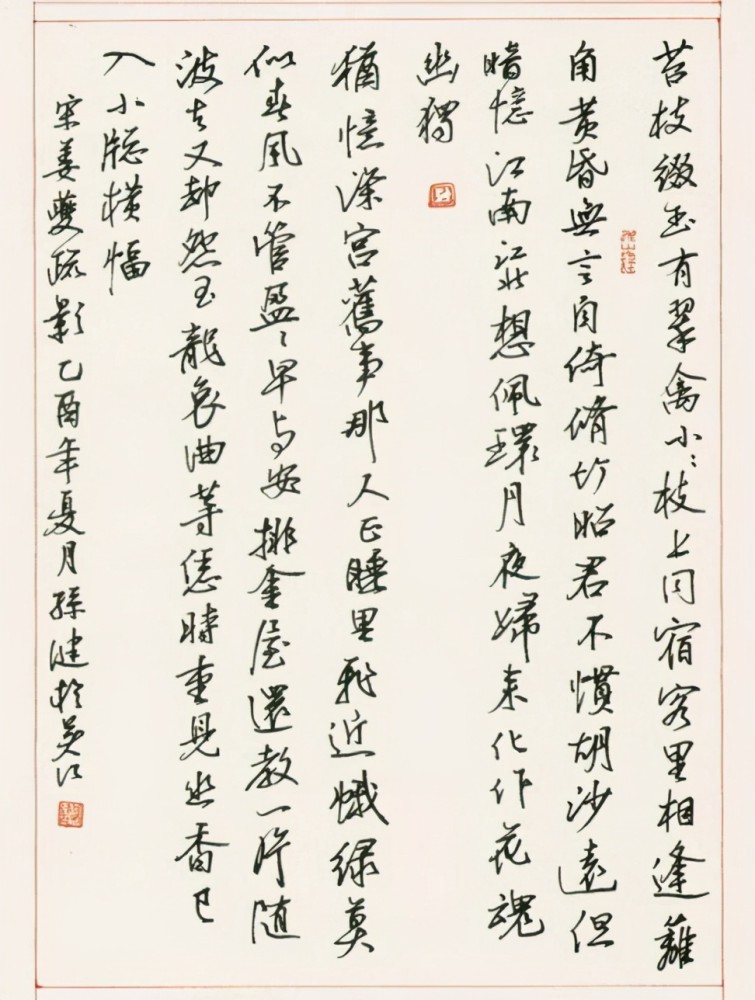 苔枝綴玉有翠禽小〻枝上同宿客里相逢籬
角黄昏無言自倚脩竹昭君不慣胡沙遠但
暗憶江南江北想佩環月夜歸来化作花魂
幽獨
猶憶深宮舊事那人正睡里飛近蛾緑莫
似春風不管盈〻早与安排金屋還教一片随
波去又却怨玉龍哀曲等恁時重見幽香已
入小牕横幅
宋姜夔疏影乙酉年夏月孫健於吴江